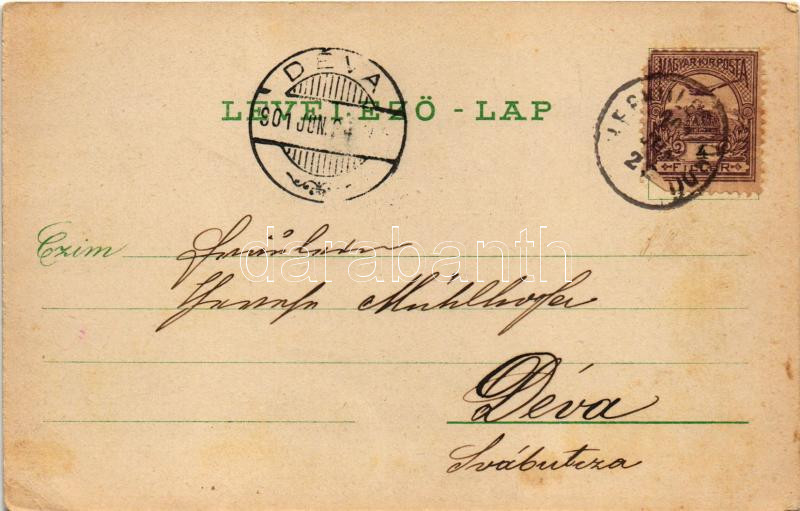 MAGYAR KIR. POSTA
DÉVA
LEVELEZŐ - LAP
901 JUN.
4
FILLÉR
Czim
Fräulein
darabanth
Mühlhofer
Déva
Svábutcza